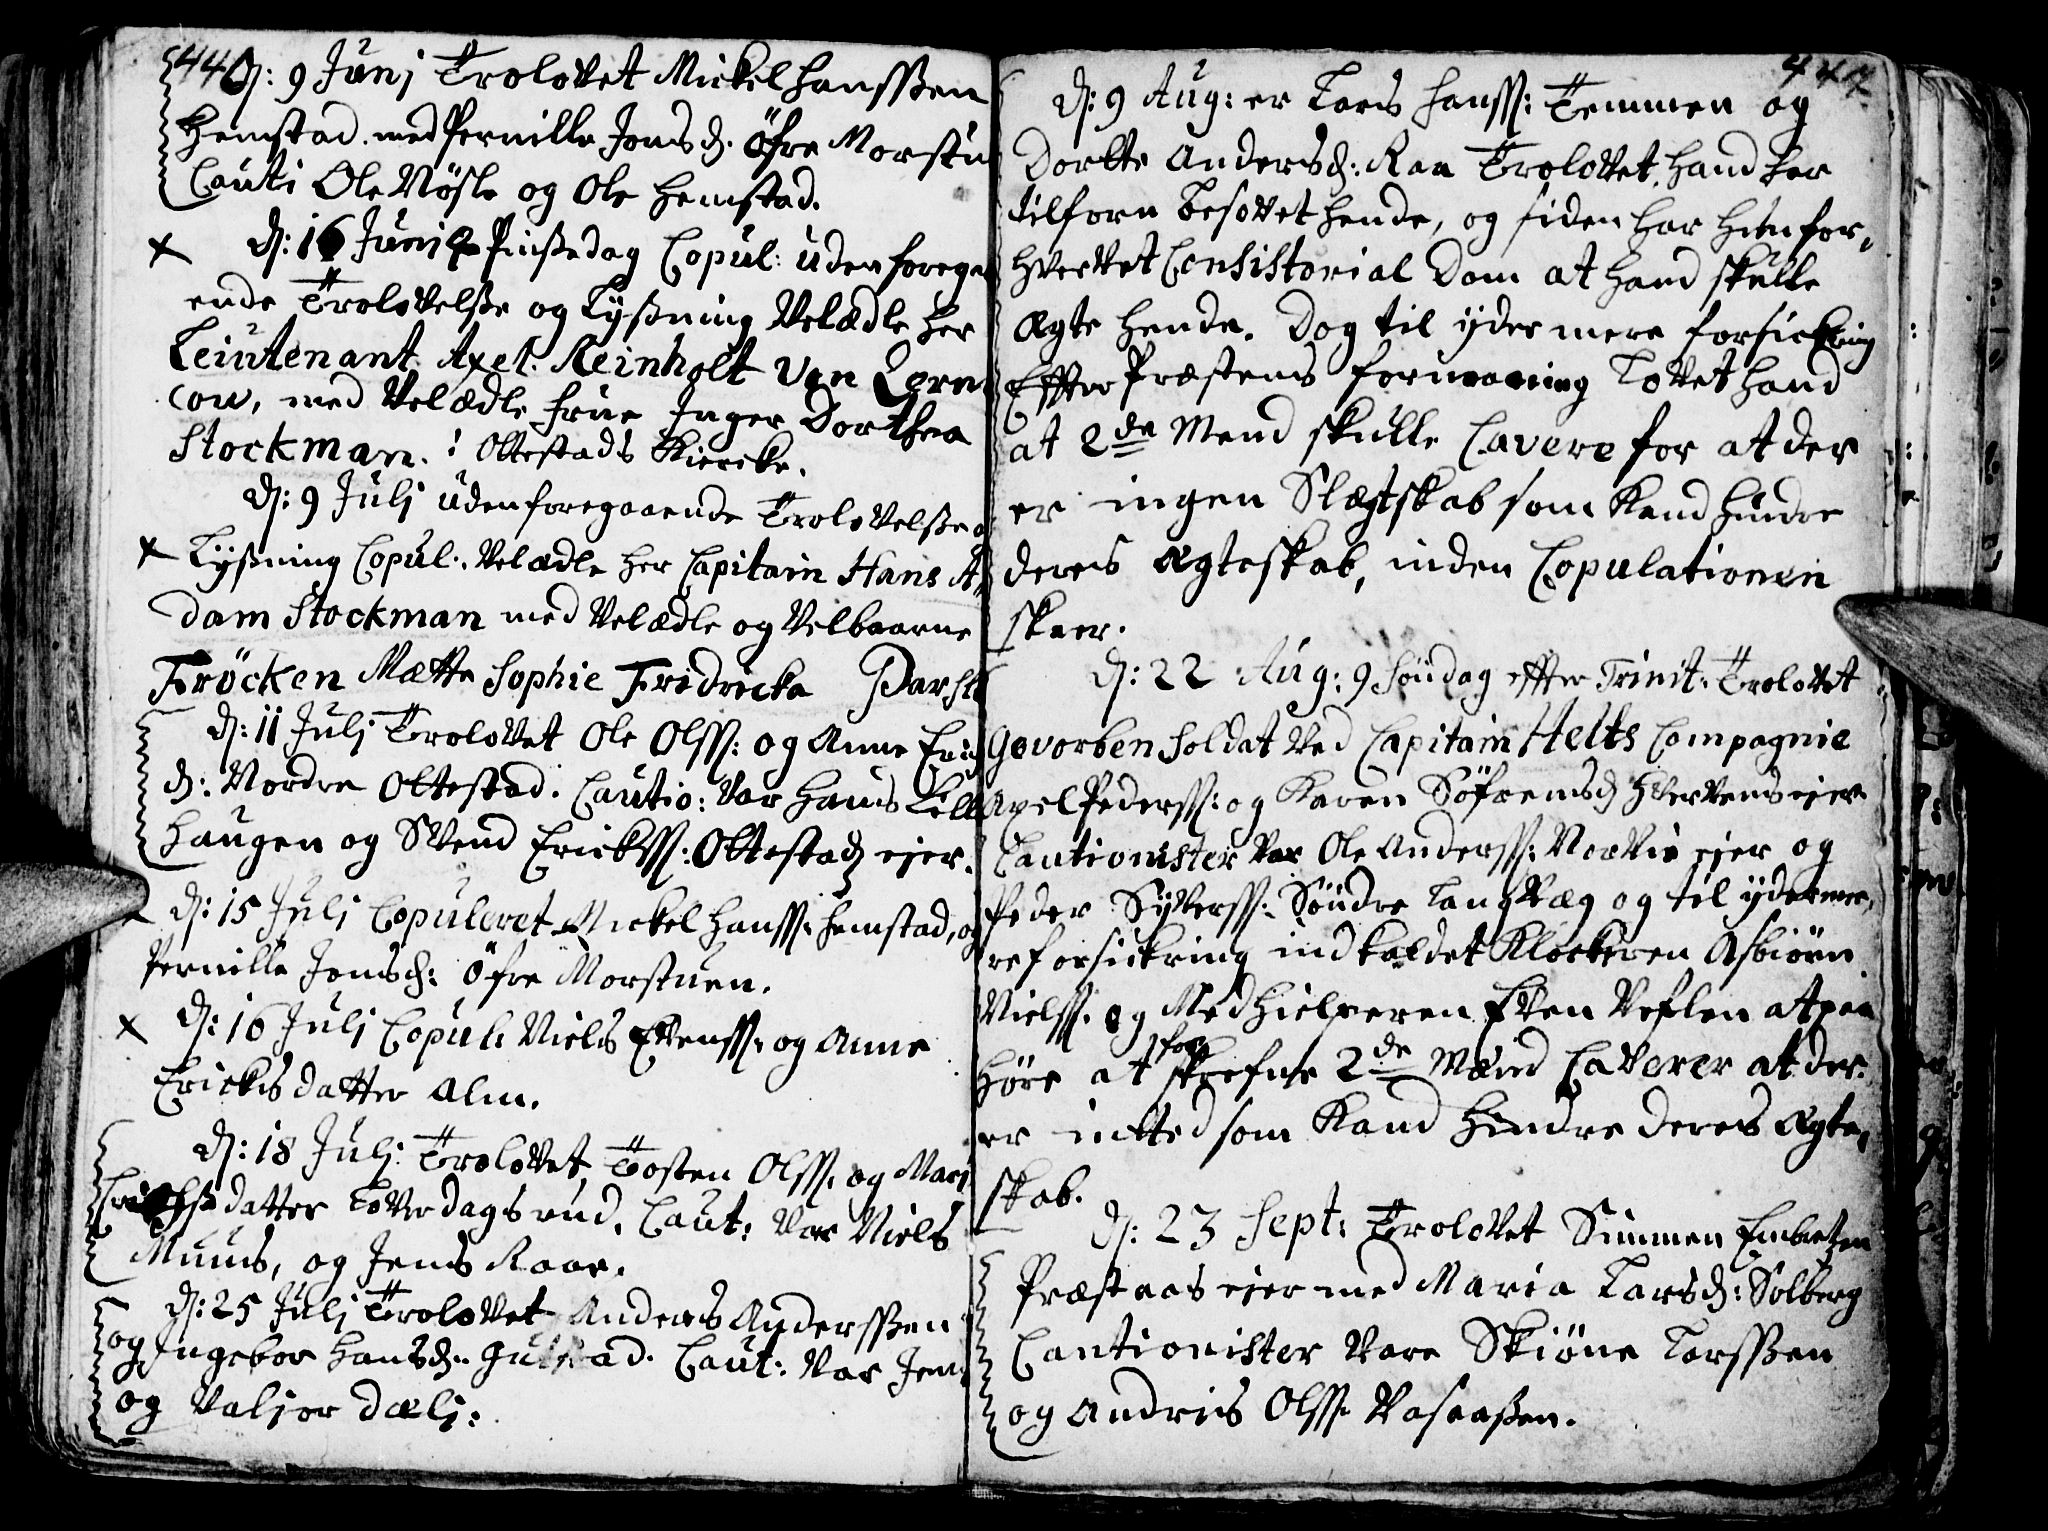 446
D: 9 Junj Trolovet Mickel Hanssßen
Hemstad med Pernille Jonsd. Öfre Morstu
Cauti Ole Nøsle og Ole Hemstad.
D: 16 Juni 2 Pinßedag Copul: uden forega
ende Trolovelße og Lyßning Velædle Her
Leiutenant Axel Reinholt Von
cow, med Velædle Frue Inger Dorthea
Stockman. : Ottestads Kiercke.
D: 9 Julj uden foregaaende Trolovelße
Lyßning Copul: Velædle Her Capitain Hans A,
dam Stockman med Velædle og Velbaarne
Fröcken Mætte Sophie Fredricka Barst
D: 11 Julj Trolovet Ole Olss: og Anne Eric
d: Nordre Ottestad. Cautio: Var Hans Lille
Haugen og Svend Erickss: Ottestad ejer.
D: 15 Julj Copuleret Mickel Hanss: Hemstad, og
Pernille Jonsd: Öfre Morstuen.
D: 16 Julj Copul: Niels Evenss: og Anne
Ericksdatter Alm.
D: 18 Julj Trolovet Tosten Olss. og Mari
datter Løverdagsrud. Caut: Var Niels
Muus, og Jens Raae.
D: 25 Julj Trolovet Anders Andersßen
og Ingebor Hansd: Caut: Var Jens
og Valjor dælj:
447
D: 9 Aug: er Lars Hanss: Temmen og
Dorthe Andersd: Raa Trolovet. Hand her
tilforn besovet hende, og siden har hun for,
hvervet Consistorial Dom at hand skulle
Ægte hende. Dog til ydermere forsickring
Effter Præstens formaning Lovet hand
at 2de Mend skulle Cavere for at der
er ingen Slægtskab som Kand hindre
deres Ægteskab, inden Copulationen
skeer.
D: 22 Aug: 9 Søndag effter Trinit: Trolovet
Gevorben Soldat Ved Capitain Helts Compagnie
Axel Pederss: og Karen Söfrensd Hvervens ejer
Cautionister Var Ole Anderss: Nordvie ejer og
Peder Syverss: Söndre Langvæg og til yderme,
re forsickring indkaldet Klockeren Asbiörn
Nielss. og Medhielperen Even Veflen at paa
höre at for skrefne 2de Mænd Caverer at der
er intted som Kand Hindre deres Ægte,
skab.
D: 23 Sept: Trolovet Simmen Embretzen
Præstaas ejer med Maria Larsd: Solberg
Cautionister Vare Skiöne Larsßen
og Andris Olss. Vasaaßen.